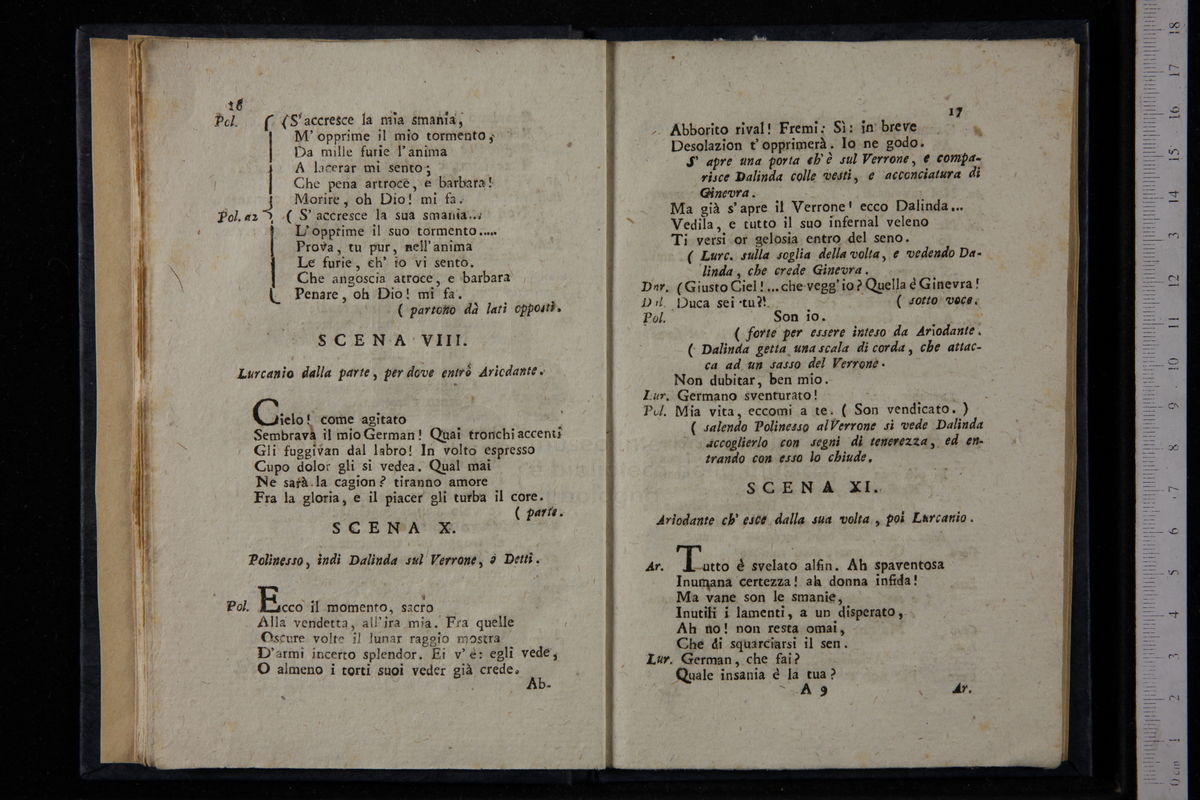 16
Pol. ( S'accresce la mia smania,
M' opprime il mio tormento,
Da mille furie l'anima
A lacerar mi sento;
Che pena artroce, e barbara!
Morire, oh Dio! mi fa.
Pol. a2 ( S' accresce la sua smania...
L'opprime il suo tormento.....
Prova, tu pur, nell'anima
Le furie, ch' io vi sento.
Che angoscia atroce, e barbara
Penare, oh Dio! mi fa.
( partono dà lati opposti.
SCENA VIII.
Lurcanio dalla parte, per dove entrò Ariodante.
Cielo! come agitato
Sembrava il mio German! Quai tronchi accenti
Gli fuggivan dal labro! In volto espresso
Cupo dolor gli si vedea. Qual mai
Ne sarà la cagion? tiranno amore
Fra la gloria, e il piacer gli turba il core.
( parte.
SCENA X.
Polinesso, indi Dalinda sul Verrone, e Detti.
Pol. Ecco il momento, sacro
Alla vendetta, all'ira mia. Fra quelle
Oscure volte il lunar raggio mostra
D'armi incerto splendor. Ei v' è: egli vede,
O almeno i torti suoi veder già crede.
Ab-
17
Abborito rival! Fremi: Sì: in breve
Desolazion t'opprimerà. Io ne godo.
S' apre una porta ch' è sul Verrone, e compa-
risce Dalinda colle vesti, e acconciatura di
Ginevra.
Ma già s'apre il Verrone! ecco Dalinda...
Vedila, e tutto il suo infernal veleno
Ti versi or gelosia entro del seno.
( Lurc. sulla soglia della volta, e vedendo Da-
linda, che crede Ginevra.
Dar. (Giusto Ciel!...che vegg'io? Quella è Ginevra!
Dal. Duca sei tu?! ( sotto voce.
Pol. Son io.
( forte per essere inteso da Ariodante.
( Dalinda getta una scala di corda, che attac-
ca ad un sasso del Verrone.
Non dubitar, ben mio.
Lur. Germano sventurato!
Pol. Mia vita, eccomi a te. ( Son vendicato. )
( salendo Polinesso al Verrone si vede Dalinda
accoglierlo con segni di tenerezza, ed en-
trando con esso lo chiude.
SCENA XI.
Ariodante ch' esce dalla sua volta, poi Lurcanio.
Ar. Tutto è svelato alfin. Ah spaventosa
Inumana certezza! ah donna infida!
Ma vane son le smanie,
Inutili i lamenti, a un disperato,
Ah no! non resta omai,
Che di squarciarsi il sen.
Lur. German, che fai?
Quale insania è la tua?
A 9 Ar.
0 cm 1 2 3 4 5 6 7 8 9 10 11 12 13 14 15 16 17 18